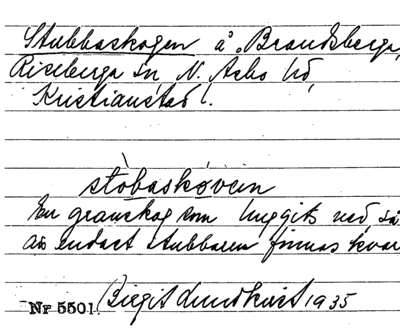 Stubbaskogen å Brandsberga,
Riseberga sn, N. Åsbo hd,
Kristianstad l.
stòbaskøvein
En granskog som huggits ned, så
att endast stubbarna finnas kvar
Nr 5501. Birgit Lundkvist 1935